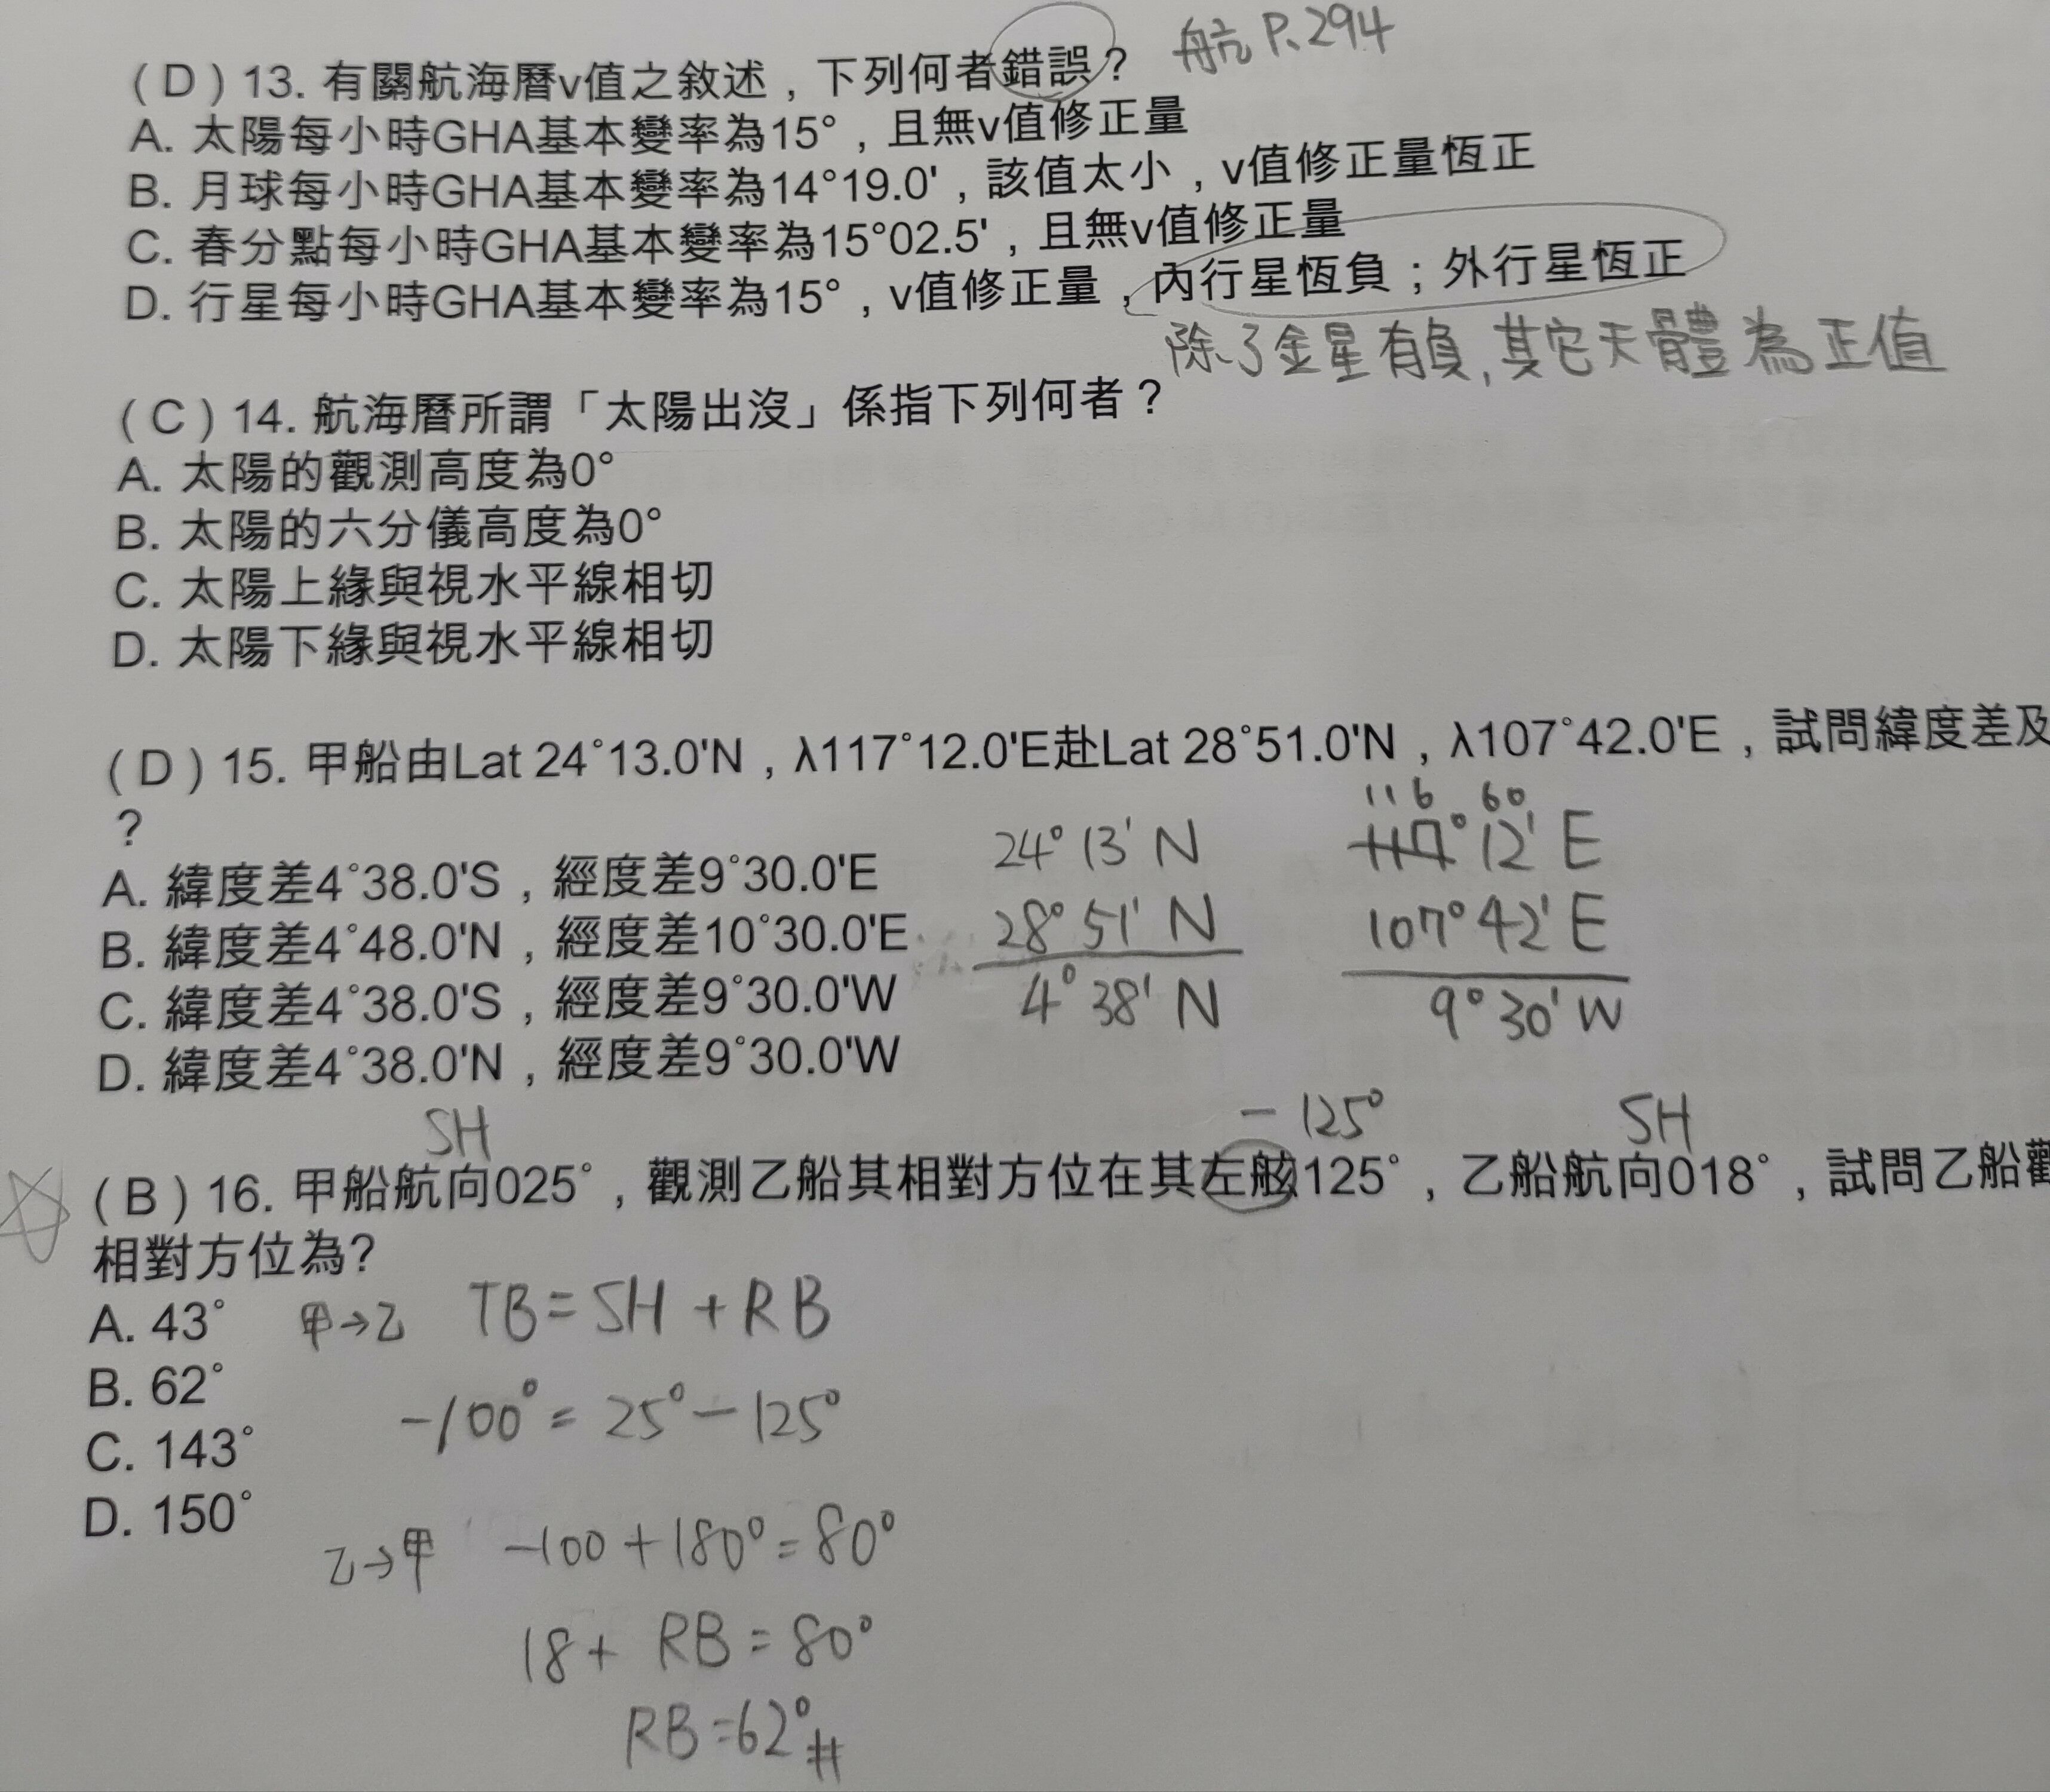 航 P.294
( D ) 13. 有關航海曆v值之敘述，下列何者錯誤？
A. 太陽每小時GHA基本變率為15°，且無v值修正量
B. 月球每小時GHA基本變率為14°19.0'，該值太小，v值修正量恆正
C. 春分點每小時GHA基本變率為15°02.5'，且無v值修正量
D. 行星每小時GHA基本變率為15°，v值修正量，內行星恆負；外行星恆正
除了金星有負,其它天體為正值
( C ) 14. 航海曆所謂「太陽出沒」係指下列何者？
A. 太陽的觀測高度為0°
B. 太陽的六分儀高度為0°
C. 太陽上緣與視水平線相切
D. 太陽下緣與視水平線相切
( D ) 15. 甲船由Lat 24°13.0'N，λ117°12.0'E赴Lat 28°51.0'N，λ107°42.0'E，試問緯度差及
?
A. 緯度差4°38.0'S，經度差9°30.0'E
B. 緯度差4°48.0'N，經度差10°30.0'E
C. 緯度差4°38.0'S，經度差9°30.0'W
D. 緯度差4°38.0'N，經度差9°30.0'W
24° 13' N
28° 51' N
4° 38' N
116 60
117° 12' E
107° 42' E
9° 30' W
SH
- 125°
SH
( B ) 16. 甲船航向025°，觀測乙船其相對方位在其左舷125°，乙船航向018°，試問乙船觀
相對方位為?
A. 43°
B. 62°
C. 143°
D. 150°
甲→乙 TB = SH + RB
-100° = 25° - 125°
乙→甲 -100 + 180° = 80°
18 + RB = 80°
RB = 62° #